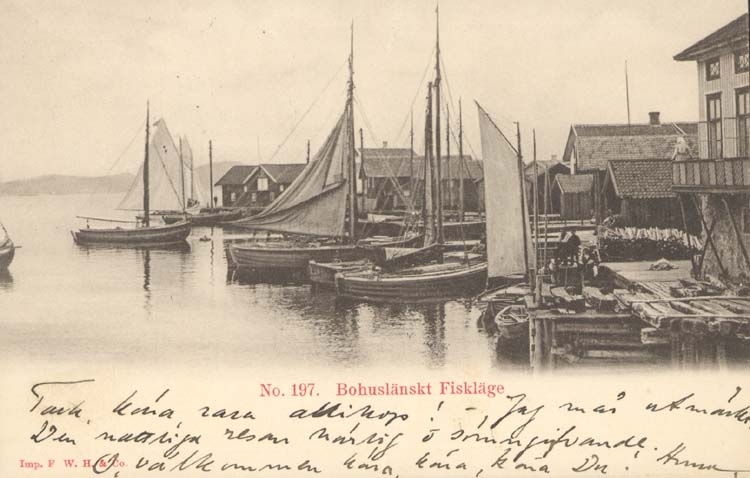 No. 197. Bohuslänskt Fiskläge
Tack, kära rara allihop! - Jag mår utmärkt
Den nattliga resan härlig o sömngifvande.
Imp. F. W. H. & Co.
O, välkommen kära, kära, kära Du!